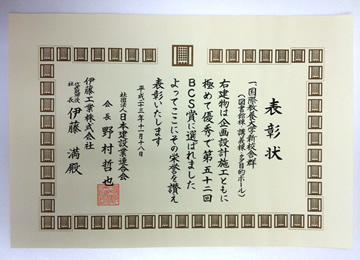 表彰状
一、国際教養大学新校舎群
(図書館棟・講義棟・多目的ホール)
右建物は企画設計施工ともに
極めて優秀で第五十二回
BCS賞に選ばれました
よってここにその栄誉を讃え
表彰いたします
平成二十三年十一月十八日
社団法人日本建設業連合会
会長 野村哲也
伊藤工業株式会社
代表取締役
社長 伊藤 満殿